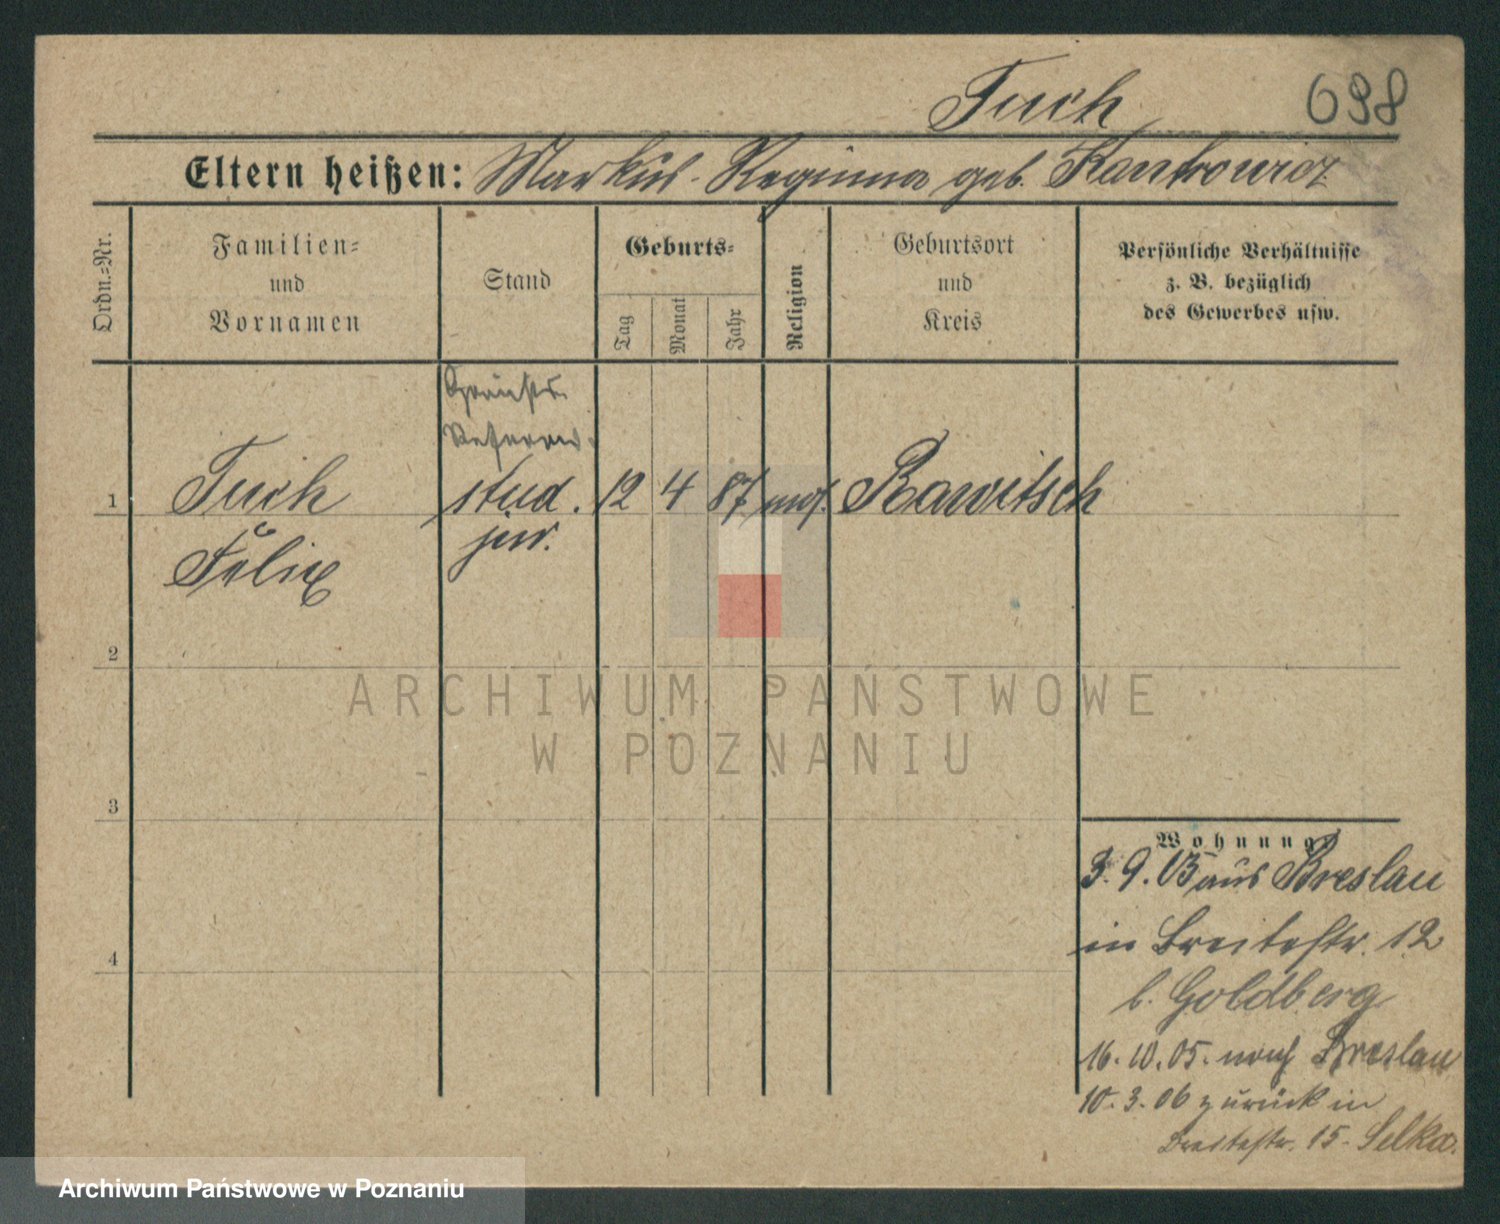 Tuch 698
Eltern heißen: Markus - Reginna geb. Kantrowicz
Ordn.=Nr.
Familien=
und
Vornamen
Stand
Geburts=
Tag
Monat
Jahr
Religion
Geburtsort
und
Kreis
Persönliche Verhältnisse
z. B. bezüglich
des Gewerbes usw.
Referend.
1 Tuch stud. 12 4 87 mos. Rawitsch
Felix jur.
2
3
4
Wohnung
3. 9. 05 aus Breslau
in Breitestr. 12
b. Goldberg
16. 10. 05. nach Breslau
10. 3. 06 zurück in
Breitestr. 15 - Selka.
ARCHIWUM PAŃSTWOWE
W POZNANIU
Archiwum Państwowe w Poznaniu